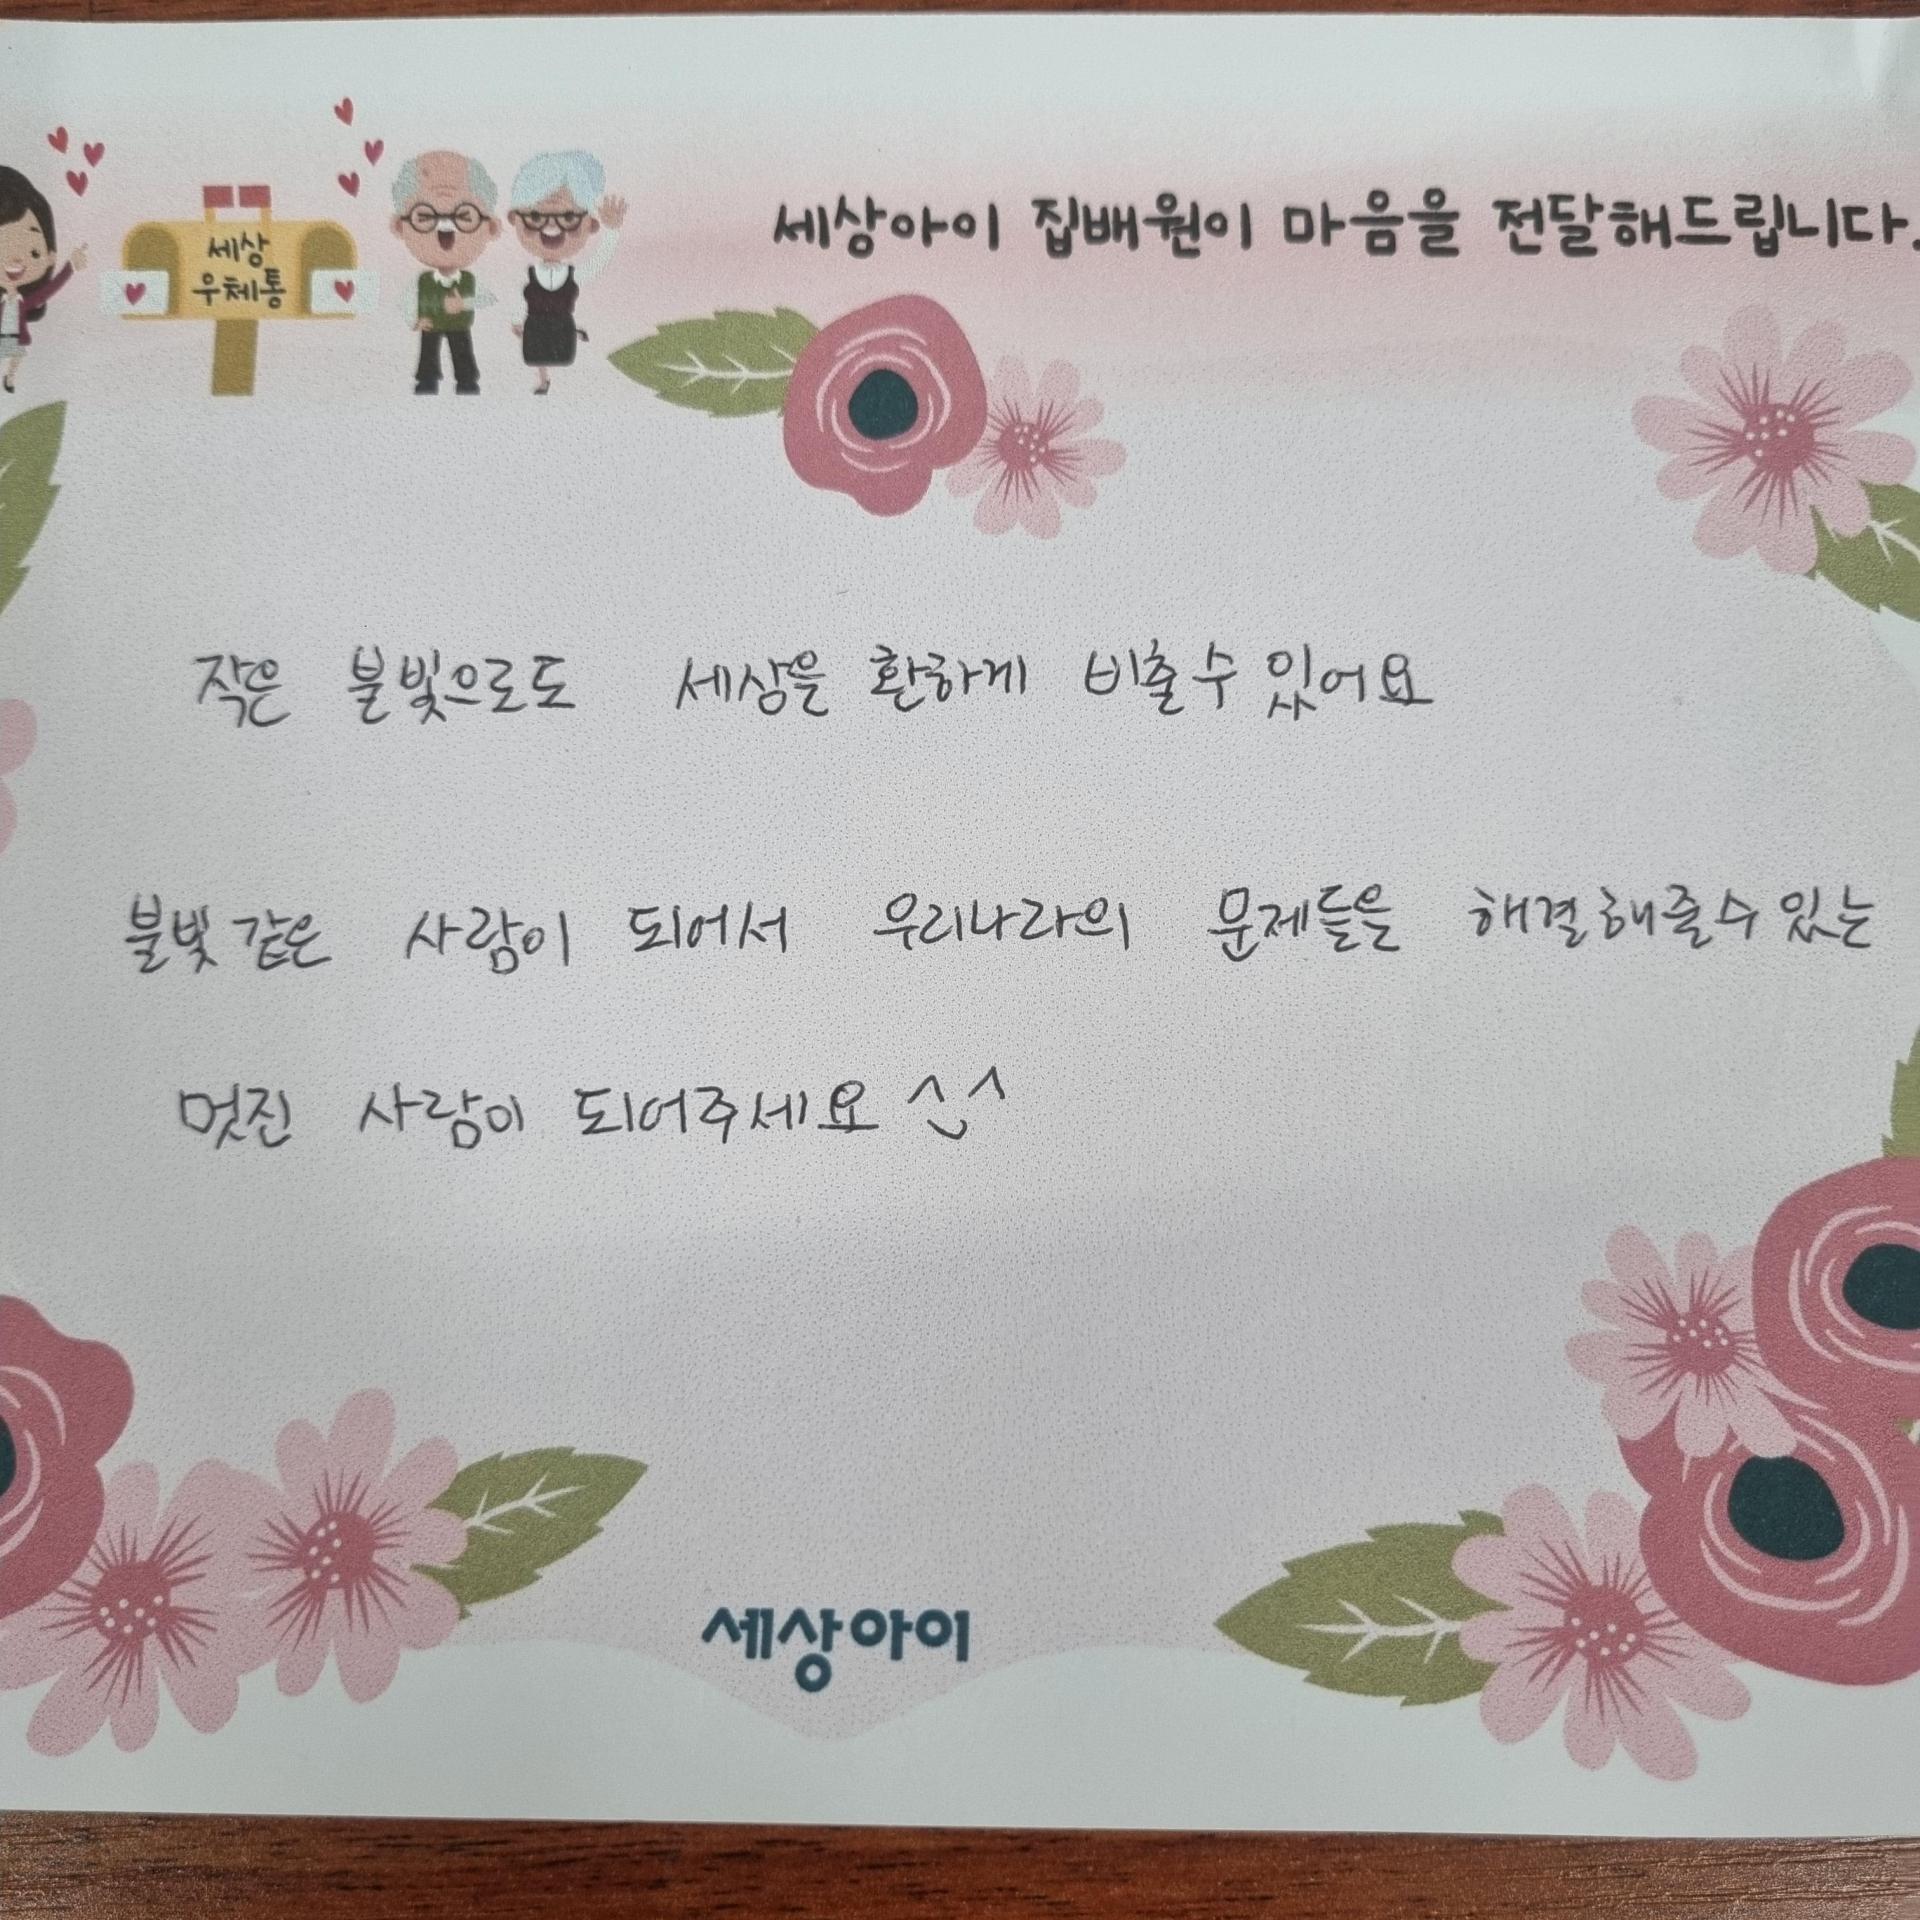 세상아이 집배원이 마음을 전달해드립니다.
세상
우체통
작은 불빛으로도 세상을 환하게 비출수 있어요
불빛 같은 사람이 되어서 우리나라의 문제들을 해결해줄수 있는
멋진 사람이 되어주세요 ^_^
세상아이